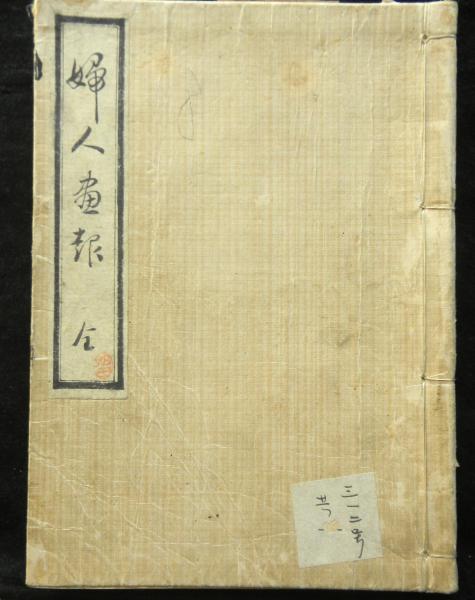 婦人画報 全
三一二号
共二